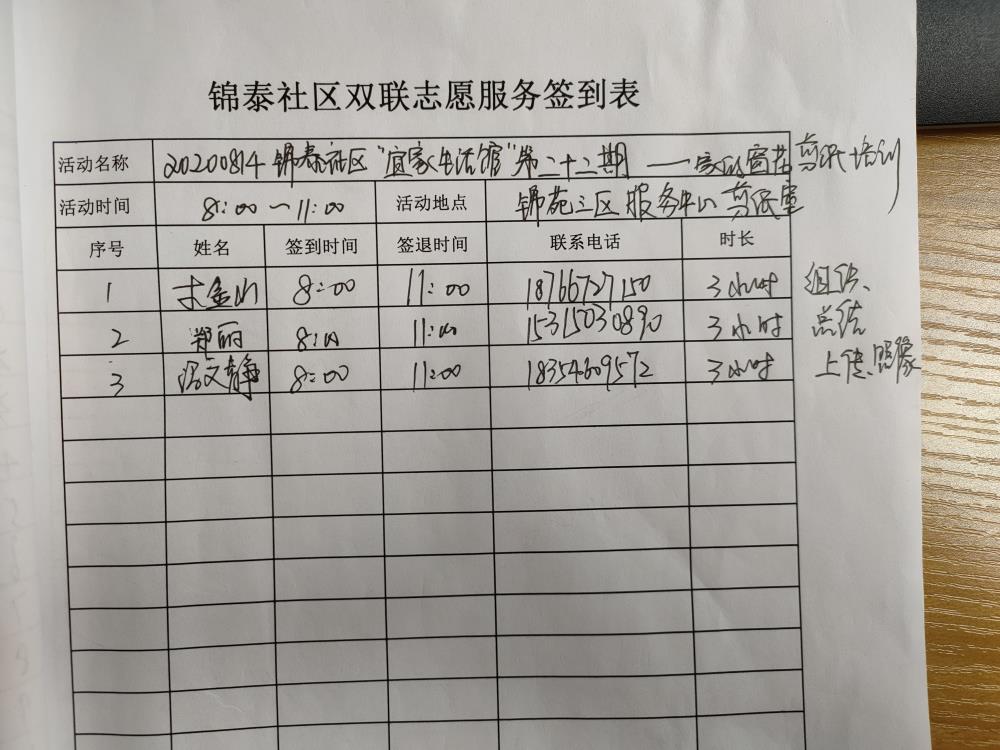 锦泰社区双联志愿服务签到表
活动名称 20200814 锦泰社区"宜家生活馆"第二十二期——家的窗花剪纸培训
活动时间 8:00~11:00 活动地点 锦苑三区服务中心剪纸室
序号 姓名 签到时间 签退时间 联系电话 时长
1 金山 8:00 11:00 18766727150 3小时 组织、
2 郑丽 8:00 11:00 15315030890 3小时 总结
3 文静 8:00 11:00 18354609572 3小时 上传、照像